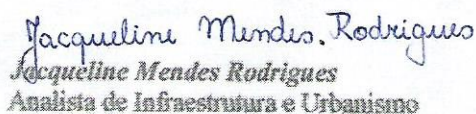 Jacqueline Mendes. Rodrigues
Jacqueline Mendes Rodrigues
Analista de Infraestrutura e Urbanismo